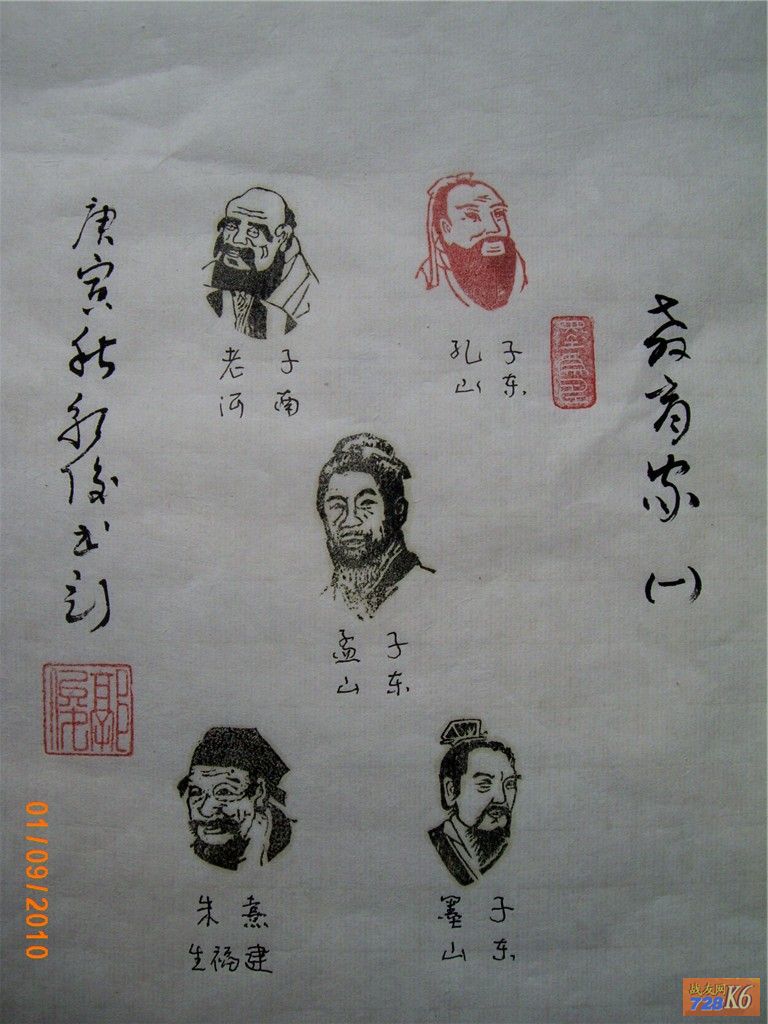 教育家(一)
孔子
山东
老子
河南
孟子
山东
墨子
山东
朱熹
生福建
庚寅秋 俊书刻
01/09/2010
战友网
728K6